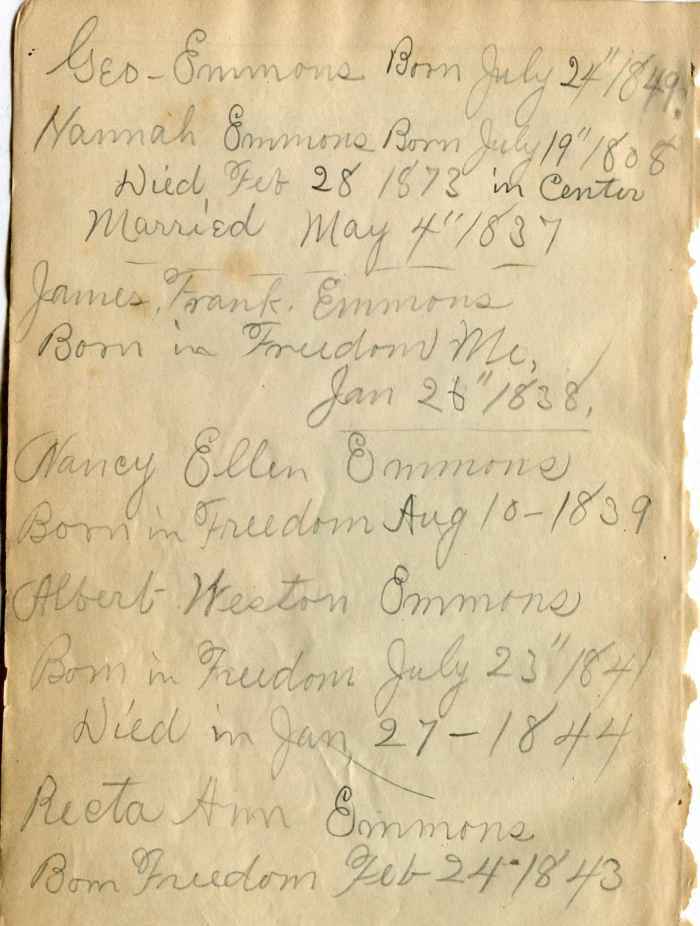 Geo - Emmons Born July 24" 1849
Hannah Emmons Born July 19" 1808
Died, Feb 28 1873 in Center
Married May 4" 1837
James, Frank. Emmons
Born in Freedom Me,
Jan 26" 1838,
Nancy Ellen Emmons
Born in Freedom Aug 10 - 1839
Albert Weston Emmons
Born in Freedom July 23" 1841
Died in Jan, 27 - 1844
Recta Ann Emmons
Born Freedom Feb 24 - 1843